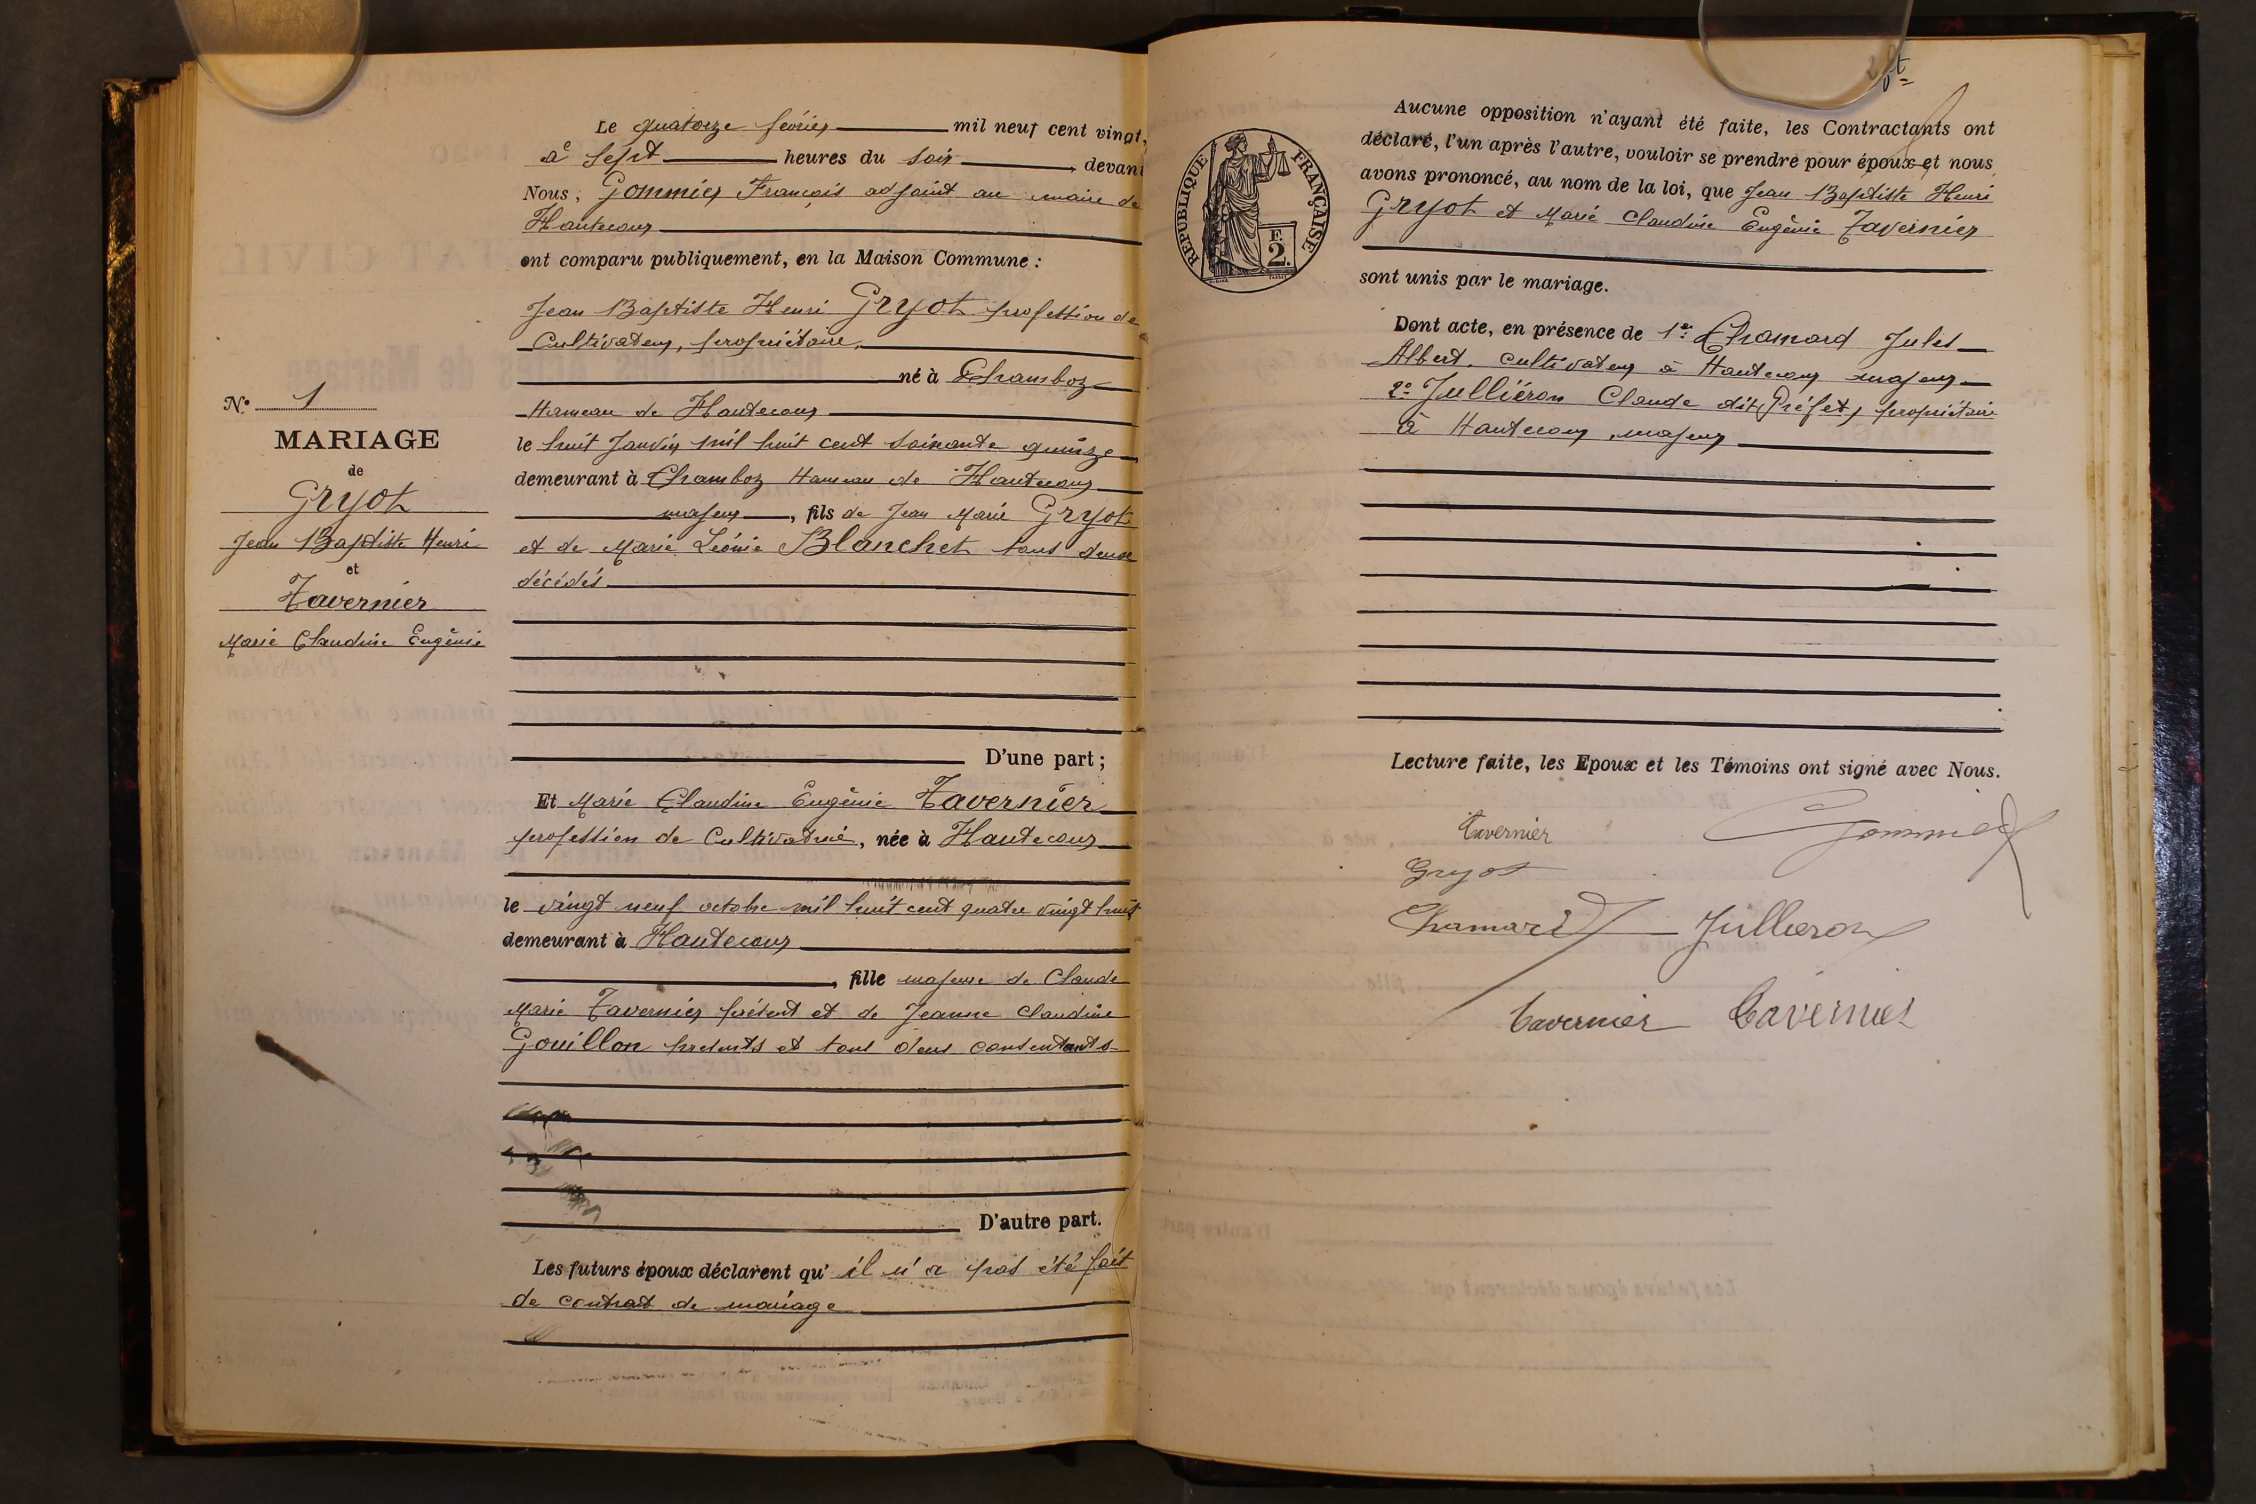 Le quatorze février mil neuf cent vingt,
à sept heures du soir, devant
Nous, Gommier François adjoint au maire de
Hautecour
ont comparu publiquement, en la Maison Commune :
Jean Baptiste Henri Gryot profession de
Cultivateur, propriétaire,
né à Chamboz
Hameau de Hautecour
le huit Janvier mil huit cent soixante quinze
demeurant à Chamboz Hameau de Hautecour
majeur, fils de Jean Marie Gryot
et de Marie Léonie Blanchet tous deux
décédés
D'une part ;
Et Marie Claudine Eugénie Tavernier
profession de Cultivatrice, née à Hautecour
le vingt neuf octobre mil huit cent quatre vingt huit
demeurant à Hautecour
, fille majeure de Claude
Marie Tavernier présent et de Jeanne Claudine
Gouillon présents et tous deux consentants
D'autre part.
Les futurs époux déclarent qu' il n'a pas été fait
de contrat de mariage
N° 1
MARIAGE
de
Gryot
Jean Baptiste Henri
et
Tavernier
Marie Claudine Eugénie
RÉPUBLIQUE FRANÇAISE
F.
2.
Aucune opposition n'ayant été faite, les Contractants ont
déclaré, l'un après l'autre, vouloir se prendre pour époux et nous
avons prononcé, au nom de la loi, que Jean Baptiste Henri
Gryot et Marie Claudine Eugénie Tavernier
sont unis par le mariage.
Dont acte, en présence de 1er: Chamard Jules
Albert, cultivateur à Hautecour majeur
2°: Jullieron Claude dit Préfet, propriétaire
à Hautecour, majeur
Lecture faite, les Epoux et les Témoins ont signé avec Nous.
Tavernier Gommier
Gryot
Chamard Jullieron
Tavernier Tavernier